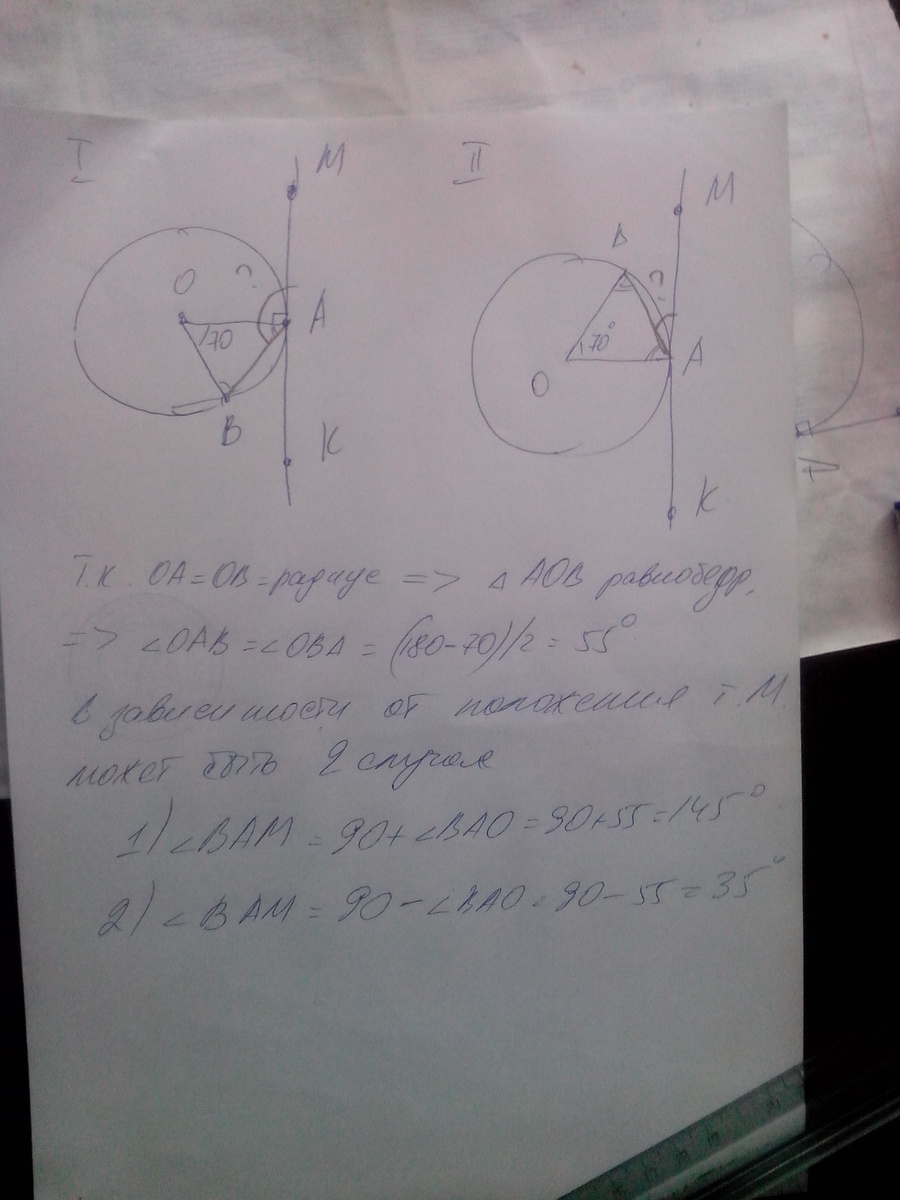 I
II
M
M
O
?
B
?
A
70
70°
A
O
B
K
K
Т.к. OA = OB = радиус => △ AOB равнобедр,
=> ∠OAB = ∠OBA = (180-70)/2 = 55°
В зависимости от положения т. М.
может быть 2 случая
1) ∠BAM = 90+∠BAO = 90+55=145°
2) ∠BAM = 90 - ∠BAO = 90-55 = 35°